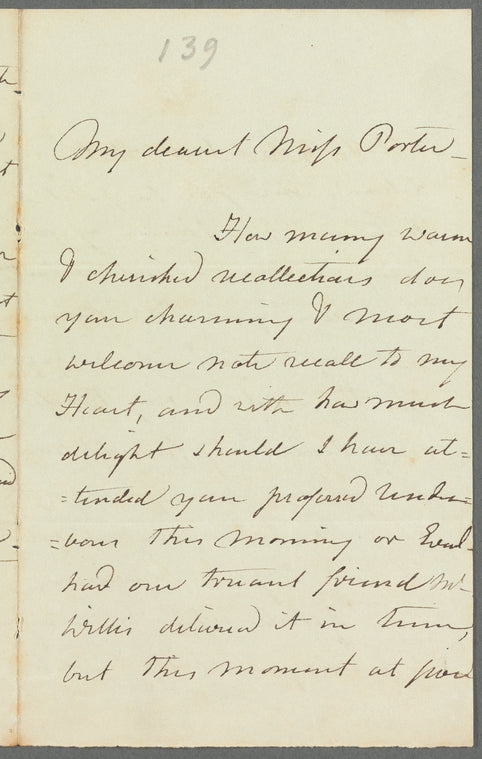 139
My dearest Miss Porter -
How many warm
& cherished recollections does
your charming & most
welcome note recall to my
Heart, and with how much
delight should I have at=
=tended your profered rendez
=vous this morning or
had our truant friend Mr
Willis delivered it in time,
but this moment at five